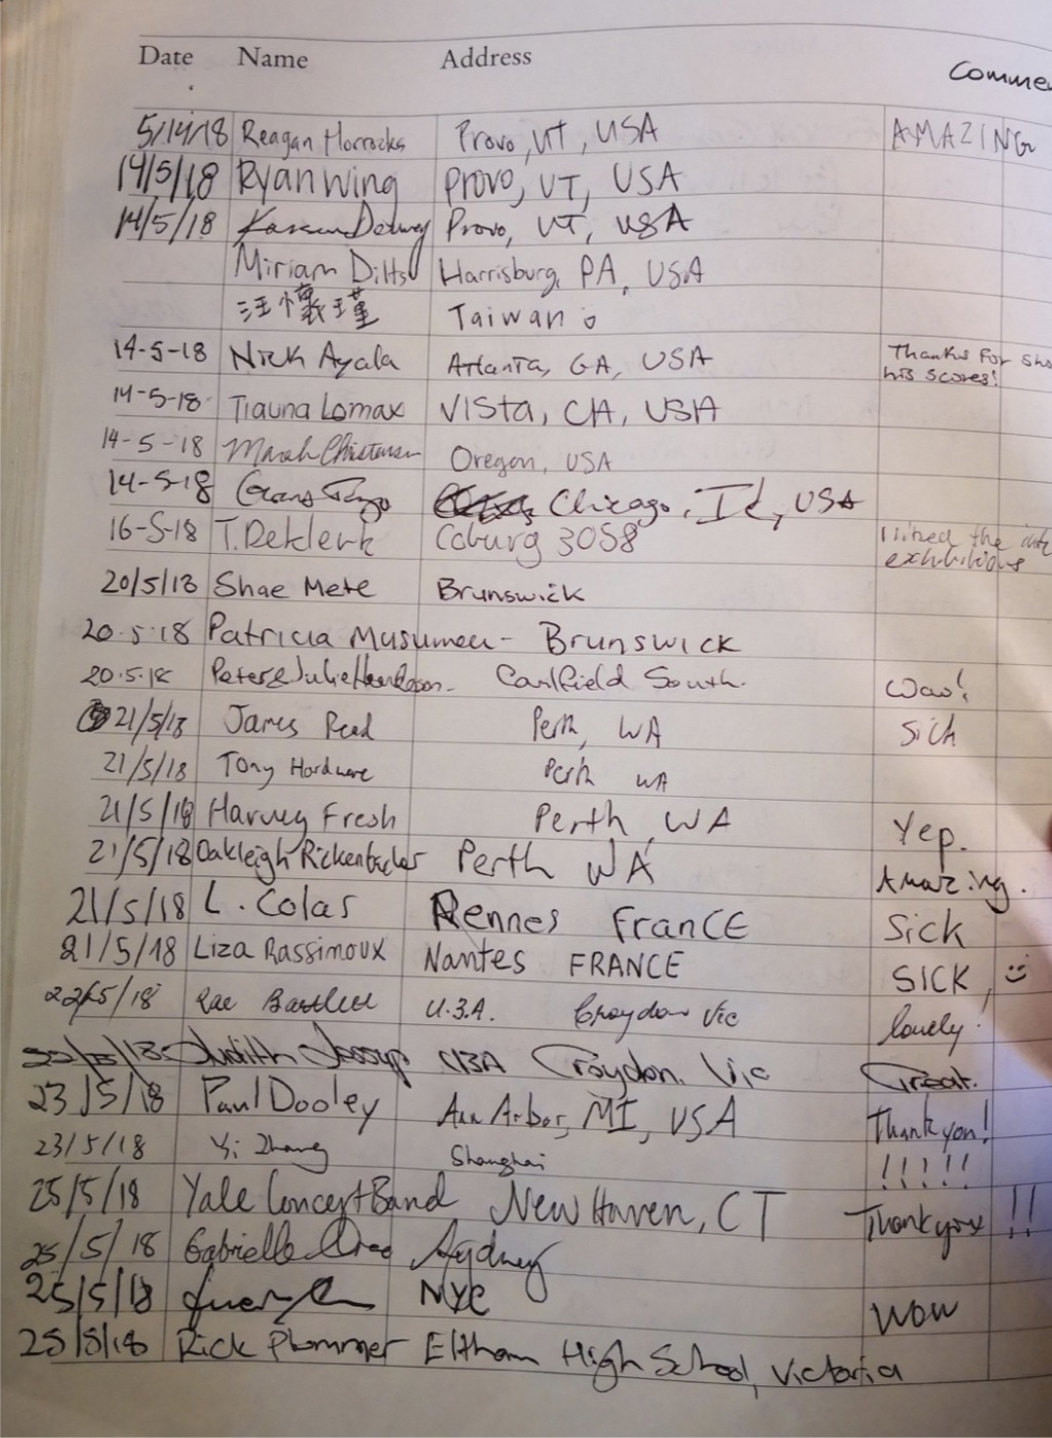 Date Name Address Comme
5/14/18 Reagan Horrocks Provo, UT, USA AMAZING
14/5/18 Ryan Wing Provo, UT, USA
14/5/18 Provo, UT, USA
Miriam Ditts Harrisburg, PA, USA
汪懷瑾 Taiwan
14-5-18 Nick Ayala Atlanta, GA, USA Thanks for sho
his scores!
14-5-18 Tiauna Lomax Vista, CA, USA
14-5-18 Oregon, USA
14-5-18 Chicago, IL, USA
16-5-18 T. Deklerk Coburg 3058 the
exhibitions
20/5/18 Shae Mete Brunswick
20.5.18 Patricia Musumeci - Brunswick
20.5.18 Peter & Julie Caulfield South. Wow!
21/5/18 James Read Perth, WA Sick
21/5/18 Tony Hardware Perth WA
21/5/18 Harvey Fresh Perth, WA Yep.
21/5/18 Oakleigh Rickenbacker Perth WA Amazing.
21/5/18 L. Colas Rennes FranCE Sick
21/5/18 Liza Rassimoux Nantes FRANCE SICK,
22/5/18 U.3.A. Croydon Vic lovely.
Judith Jessup U3A Croydon. Vic Great.
23/5/18 Paul Dooley Ann Arbor, MI, USA Thank you!
23/5/18 Yi Zhang Shanghai !!!!!
25/5/18 Yale Concert Band New Haven, CT Thank you !!
25/5/18 Gabrielle Sydney
25/5/18 NYC WOW
25/5/18 Rick Plummer Eltham High School, Victoria